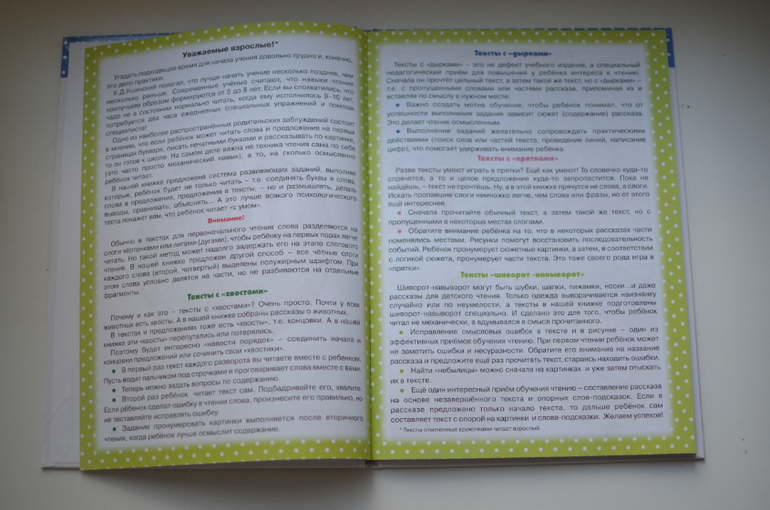 Уважаемые взрослые!*
Угадать подходящее время для начала учения довольно трудно и, конечно,
это дело практики.
К.Д.Ушинский полагал, что лучше начать учение несколько позднее, чем
несколько раньше. Современные учёные считают, что навыки чтения
наилучшим образом формируются от 5 до 8 лет. Если вы спохватились, что
чадо не в состоянии нормально читать, когда ему исполнилось 9–10 лет,
потребуется два часа ежедневных специальных упражнений и помощь
специалиста!
Одно из наиболее распространённых родительских заблуждений состоит
в мнении, что если ребёнок может читать слова и предложения на первых
страницах букваря, писать печатными буквами и рассказывать по картинке,
то он готов к школе. На самом деле важна не техника чтения сама по себе
(это часто просто механический навык), а то, на сколько осмысленно
ребёнок читает.
В нашей книжке предложена система развивающих заданий, выполняя
которые, ребёнок будет не только читать – т.е. соединять буквы в слова,
слова в предложения, предложения в тексты, – но и размышлять, делать
выводы, сравнивать, объяснять... А это лучше всякого психологического
теста покажет вам, что ребёнок читает «с умом».
Внимание!
Обычно в текстах для первоначального чтения слова разделяются на
слоги чёрточками или лигами (дугами), чтобы ребёнку на первых порах легче
читать. Но такой метод может надолго задержать его на этапе слогового
чтения. В нашей книжке предложен другой способ – все чётные слоги
каждого слова (второй, четвёртый) выделены полужирным шрифтом. При
этом слова условно делятся на части, но не разбиваются на отдельные
фрагменты.
Тексты с «хвостами»
Почему и как это – тексты с «хвостами»? Очень просто. Почти у всех
животных есть хвосты. А в нашей книжке собраны рассказы о животных.
В текстах и предложениях тоже есть «хвосты», т.е. концовки. А в нашей
книжке эти «хвосты» перепутались или потерялись.
Поэтому будет интересно «навести порядок» – соединить начала и
концовки предложений или сочинить свои «хвостики».
● В первый раз текст каждого разворота вы читаете вместе с ребёнком.
Пусть водит пальчиком под строчками и проговаривает слова вместе с вами.
● Теперь можно задать вопросы по содержанию.
● Второй раз ребёнок читает текст сам. Подбадривайте его, хвалите.
Если ребёнок сделал ошибку в чтении слова, произнесите его правильно, но
не заставляйте исправлять ошибку.
● Задание пронумеровать картинки выполняется после вторичного
чтения, когда ребёнок лучше осмыслит содержание.
Тексты с «дырками»
Тексты с «дырками» – это не дефект учебного издания, а специальный
педагогический приём для повышения у ребёнка интереса к чтению.
Сначала он прочтёт цельный текст, а затем такой же текст, но с «дырками» –
т.е. с пропущенными словами или частями рассказа, припоминая их и
вставляя по смыслу в нужном месте.
● Важно создать мотив обучения, чтобы ребёнок понимал, что от
успешности выполнения задания зависит сюжет (содержание) рассказа.
Это делает чтение осмысленным.
● Выполнение заданий желательно сопровождать практическими
действиями (поиск слов или частей текста, проведение линий, написание
цифр), что помогает удерживать внимание ребёнка.
Тексты с «прятками»
Разве тексты умеют играть в прятки? Ещё как умеют! То словечко куда-то
спрячется, а то и целое предложение куда-то запропастится. Пока не
найдёшь, – текст не прочтёшь. Ну, а в этой книжке прячутся не слова, а слоги.
Искать пропавшие слоги немножко легче, чем слова или фразы, но от этого
ещё интереснее.
● Сначала прочитайте обычный текст, а затем такой же текст, но с
пропущенными в некоторых местах слогами.
● Обратите внимание ребёнка на то, что в некоторых рассказах части
поменялись местами. Рисунки помогут восстановить последовательность
событий. Ребёнок пронумерует сюжетные картинки, а затем, в соответствии
с логикой сюжета, пронумерует части текста. Это тоже своего рода игра в
«прятки».
Тексты «шиворот -навыворот»
Шиворот-навыворот могут быть шубки, шапки, пижамки, носки...и даже
рассказы для детского чтения. Только одежда выворачивается наизнанку
случайно или по неумелости, а тексты в нашей книжке подготовлены
шиворот-навыворот специально. И сделано это для того, чтобы ребёнок
читал не механически, а вдумываясь в смысл прочитанного.
● Исправление смысловых ошибок в тексте и в рисунке – один из
эффективных приёмов обучения чтению. При первом чтении ребёнок может
не заметить ошибки и несуразности. Обратите его внимание на название
рассказа и предложите ещё раз прочитать текст, стараясь находить ошибки.
● Найти «небылицы» можно сначала на картинках и уже затем отыскать
их в тексте.
● Ещё один интересный приём обучения чтению – составление рассказа
на основе незавершённого текста и опорных слов-подсказок. Если в
рассказе предложено только начало текста, то дальше ребёнок сам
составляет текст с опорой на картинки и слова-подсказки. Желаем успехов!
* Тексты отмеченные кружочками читает взрослый.